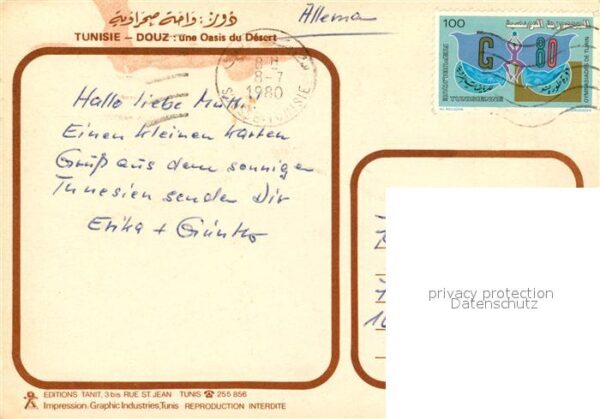 دوز: واحة صحراوية
TUNISIE – DOUZ: une Oasis du Désert
Alleman
100
G 80
REPUBLIQUE TUNISIENNE
GYMNASIADES DE TUNIS
8-7
1980
TUNISIE
Hallo liebe Mutti
Einen kleinen Karten
Gruß aus dem sonnigen
Tunesien senden Dir
Erika + Günter
privacy protection
Datenschutz
EDITIONS TANIT, 3 bis RUE ST. JEAN TUNIS ☎ 255 856
Impression: Graphic Industries, Tunis REPRODUCTION INTERDITE